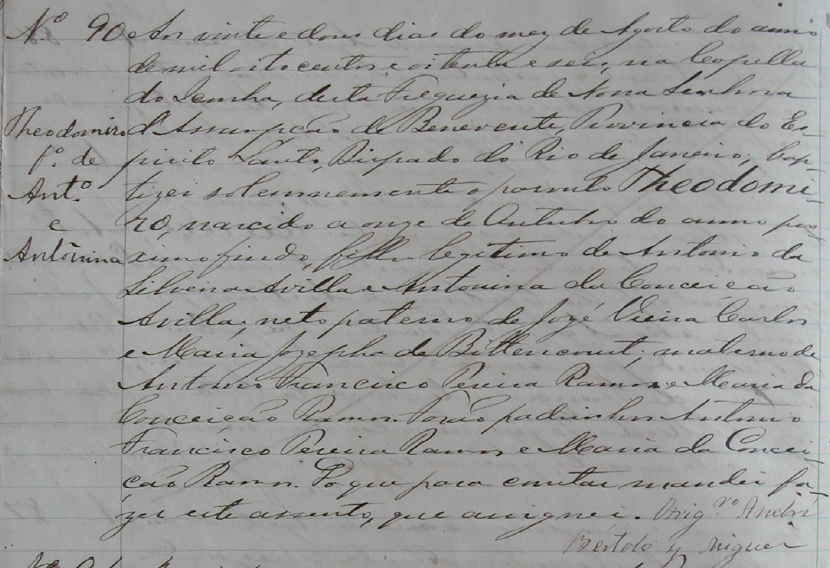 Nº 90
Aos vinte e dous dias do mez de Agosto do anno
de mil oito centos e oitenta e seis, na Capella
do Senhor, desta Freguezia de Nossa Senhora
Theodomiro
d'Assumpção de Benevente, Provincia do Es-
fº de
pirito Santo, Bispado do Rio de Janeiro, bap-
Antº
tizei solemnemente o parvulo Theodomi-
e
ro, nascido a onze de Outubro do anno pro-
Antônina
ximo findo, filho legitimo de Antonio da
Silveira Avilla e Antonina da Conceição
Avilla, neto paterno de Jozé Vieira Carlos
e Maria Jozepha de Bittencourt; materno de
Antonio Francisco Pereira Ramos e Maria da
Conceição Ramos. Forão padrinhos Antonio
Francisco Pereira Ramos e Maria da Concei-
ção Ramos. Do que para constar mandei fa-
zer este assento, que assignei. André